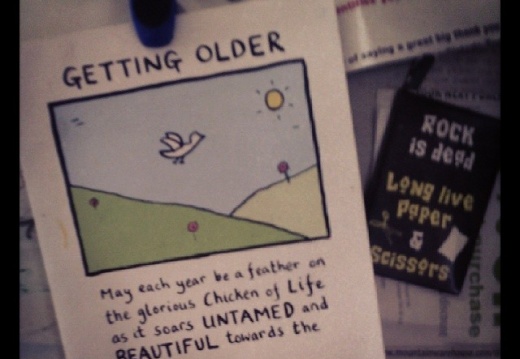 GETTING OLDER
May each year be a feather on
the glorious Chicken of Life
as it soars UNTAMED and
BEAUTIFUL towards the
of saying a great big thank you
ROCK
is dead
Long live
paper
&
Scissors
purchase